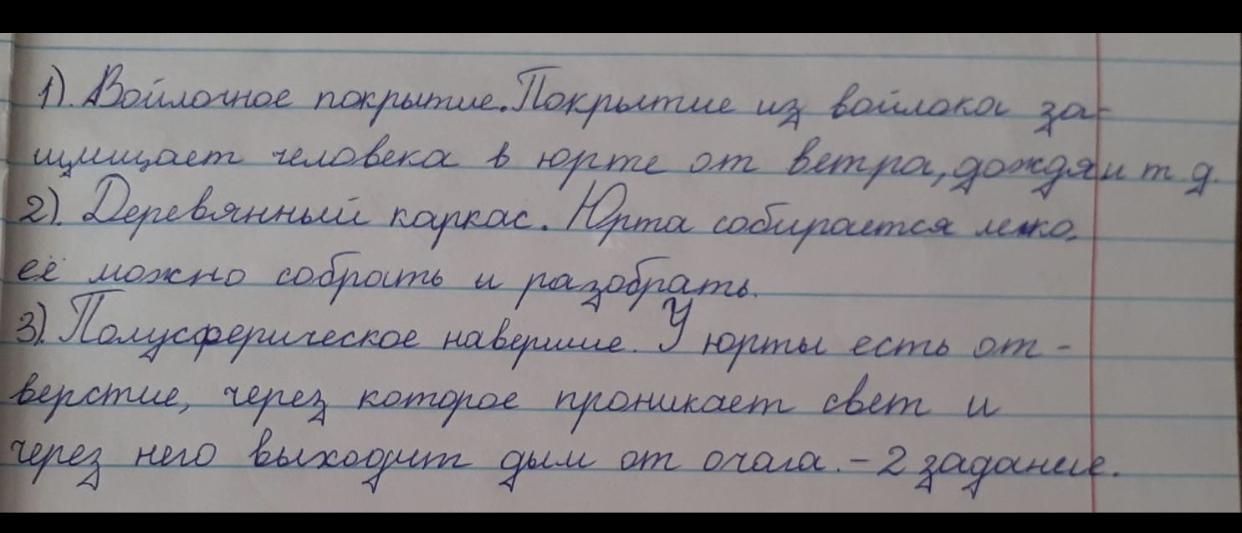 1). Войлочное покрытие. Покрытие из войлока за-
щищает человека в юрте от ветра, дождя и т д.
2). Деревянный каркас. Юрта собирается легко.
её можно собрать и разобрать.
3). Полусферическое навершие. У юрты есть от-
верстие, через которое проникает свет и
через него выходит дым от очага. - 2 задание.